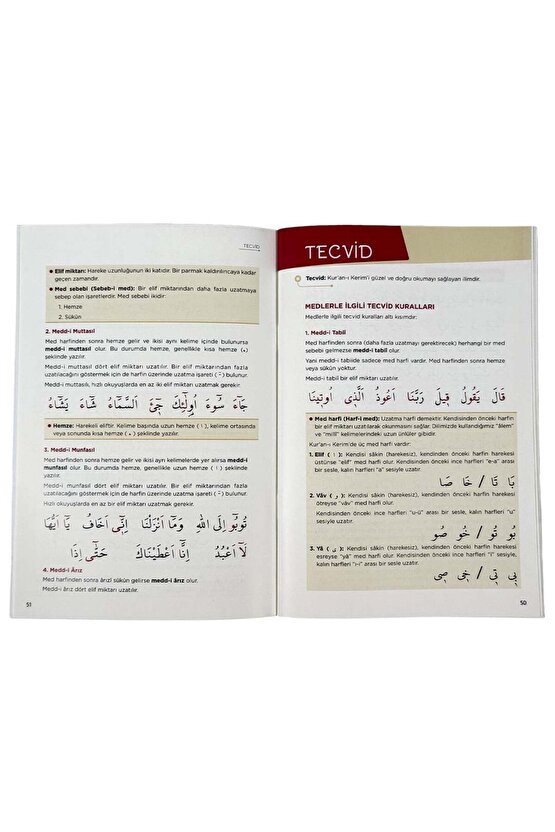 TECVİD
Tecvid: Kur'an-ı Kerim'i güzel ve doğru okumayı sağlayan ilimdir.
MEDLERLE İLGİLİ TECVİD KURALLARI
Medlerle ilgili tecvid kuralları altı kısımdır:
1. Medd-i Tabiî
Med harfinden sonra (daha fazla uzatmayı gerektirecek) herhangi bir med
sebebi gelmezse medd-i tabiî olur.
Yani medd-i tabiide sadece med harfi vardır. Med harfinden sonra hemze
veya sükûn yoktur.
Medd-i tabiî bir elif miktarı uzatılır.
قَالَ يَقُولُ قِيلَ رَبَّنَا اَعُوذُ الَّذِى اُوتِينَا
Med harfi (Harf-i med): Uzatma harfi demektir. Kendisinden önceki harfin
bir elif miktarı uzatılarak okunmasını sağlar. Dilimizde kullandığımız "âlem"
ve "millî" kelimelerindeki uzun ünlüler gibidir.
Kur'an-ı Kerim'de üç med harfi vardır:
1. Elif ( ا ): Kendisi sâkin (harekesiz), kendinden önceki harfin harekesi
üstünse "elif" med harfi olur. Kendisinden önceki ince harfleri "e-a" arası
bir sesle, kalın harfleri "a" sesiyle uzatır.
يَا تَا / خَا صَا
2. Vâv ( و ): Kendisi sâkin (harekesiz), kendinden önceki harfin harekesi
ötreyse "vâv" med harfi olur.
Kendisinden önceki ince harfleri "u-ü" arası bir sesle, kalın harfleri "u"
sesiyle uzatır.
بُو تُو / خُو صُو
3. Yâ ( ى ): Kendisi sâkin (harekesiz), kendinden önceki harfin harekesi
esreyse "yâ" med harfi olur. Kendisinden önceki ince harfleri "i" sesiyle,
kalın harfleri "ı-i" arası bir sesle uzatır.
بِى تِى / خِى صِى
50
TECVİD
Elif miktarı: Hareke uzunluğunun iki katıdır. Bir parmak kaldırılıncaya kadar
geçen zamandır.
Med sebebi (Sebeb-i med): Bir elif miktarından daha fazla uzatmaya
sebep olan işaretlerdir. Med sebebi ikidir:
1. Hemze
2. Sükûn
2. Medd-i Muttasıl
Med harfinden sonra hemze gelir ve ikisi aynı kelime içinde bulunursa
medd-i muttasıl olur. Bu durumda hemze, genellikle kısa hemze ( ء )
şeklinde yazılır.
Medd-i muttasıl dört elif miktarı uzatılır. Bir elif miktarından fazla
uzatılacağını göstermek için de harfin üzerinde uzatma işareti ( ٓ ) bulunur.
Medd-i muttasılı, hızlı okuyuşlarda en az iki elif miktarı uzatmak gerekir.
جَٓاءَ سُٓوءَ اُولٰٓئِكَ جِٓئَ اَلسَّمَٓاءُ شَٓاءَ يَشَٓاءُ
Hemze: Harekeli eliftir. Kelime başında uzun hemze ( ا ), kelime ortasında
veya sonunda kısa hemze ( ء ) şeklinde yazılır.
3. Medd-i Munfasıl
Med harfinden sonra hemze gelir ve ikisi ayrı kelimelerde yer alırsa medd-i
munfasıl olur. Bu durumda hemze, genellikle uzun hemze ( ا ) şeklinde
yazılır.
Medd-i munfasıl dört elif miktarı uzatılır. Bir elif miktarından fazla
uzatılacağını göstermek için de harfin üzerinde uzatma işareti ( ٓ ) bulunur.
Hızlı okuyuşlarda en az bir elif miktarı uzatmak gerekir.
تُوبُٓوا اِلَى اللهِ وَمَٓا اَنْزَلْنَا اِنِّٓى اَخَافُ يَٓا اَيُّهَا
لَٓا اَعْبُدُ اِنَّٓا اَعْطَيْنَاكَ حَتّٰٓى اِذَا
4. Medd-i Ârız
Med harfinden sonra ârızî sükûn gelirse medd-i ârız olur.
Medd-i ârız dört elif miktarı uzatılır.
51